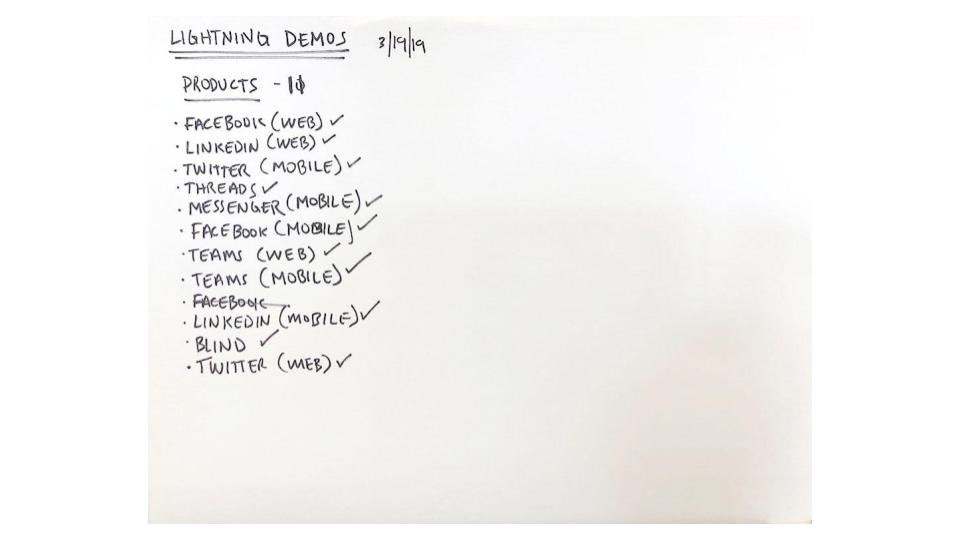 LIGHTNING DEMOS 3/19/19
PRODUCTS - 10
• FACEBOOK (WEB) ✓
• LINKEDIN (WEB) ✓
• TWITTER (MOBILE) ✓
• THREADS ✓
• MESSENGER (MOBILE) ✓
• FACEBOOK (MOBILE) ✓
• TEAMS (WEB) ✓
• TEAMS (MOBILE) ✓
• FACEBOOK
• LINKEDIN (MOBILE) ✓
• BLIND ✓
• TWITTER (WEB) ✓